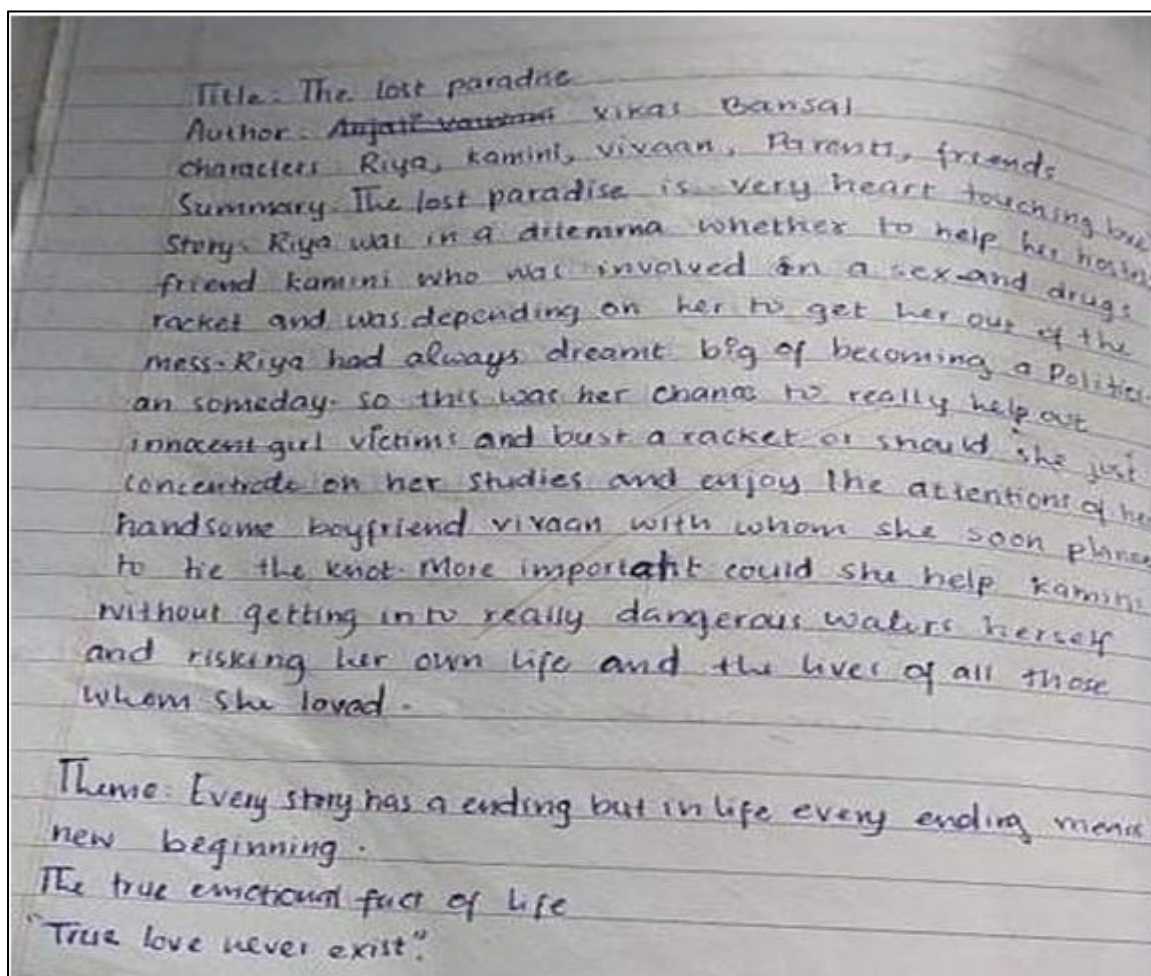 Title: The lost paradise
Author: vikas Bansal
Characters Riya, kamini, vivaan, Parents, friends
Summary. The lost paradise is very heart touching love
story. Riya was in a dilemma whether to help her
friend kamini who was involved in a sex and drugs
racket and was depending on her to get her out of the
mess. Riya had always dreamt big of becoming a Politici-
an someday. so this was her chance to really help out
innocent girl victims and bust a racket or should she just
concentrate on her studies and enjoy the attentions of her
handsome boyfriend vivaan with whom she soon
to tie the knot. More important could she help kamini
without getting into really dangerous waters herself
and risking her own life and the lives of all those
whom she loved.
Theme: Every story has a ending but in life every ending
new beginning.
The true emotional fact of life
"True love never exist".